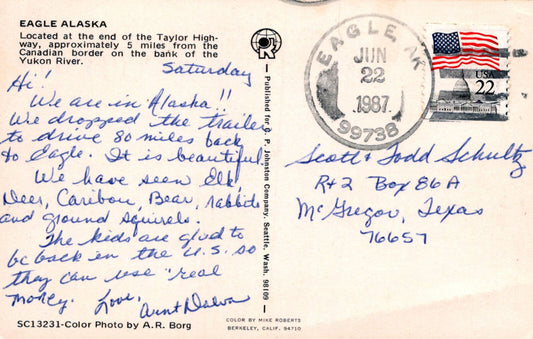 EAGLE ALASKA
Located at the end of the Taylor High-
way, approximately 5 miles from the
Canadian border on the bank of the
Yukon River.
Saturday
Hi!
We are in Alaska!!
We dropped the trailer
to drive 80 miles back
to Eagle. It is beautiful.
We have seen Elk,
Deer, Caribou, Bear, rabbits
and ground squirrels.
The kids are glad to
be back in the U.S. so
they can use "real
money.
Love,
Aunt Dalva
SC13231-Color Photo by A.R. Borg
R
Published for C. P. Johnston Company, Seattle, Wash. 98109
COLOR BY MIKE ROBERTS
BERKELEY, CALIF. 94710
EAGLE, AK
JUN
22
1987
99738
USA
22
Scott & Todd Schultz
Rt 2 Box 86A
McGregor, Texas
76657